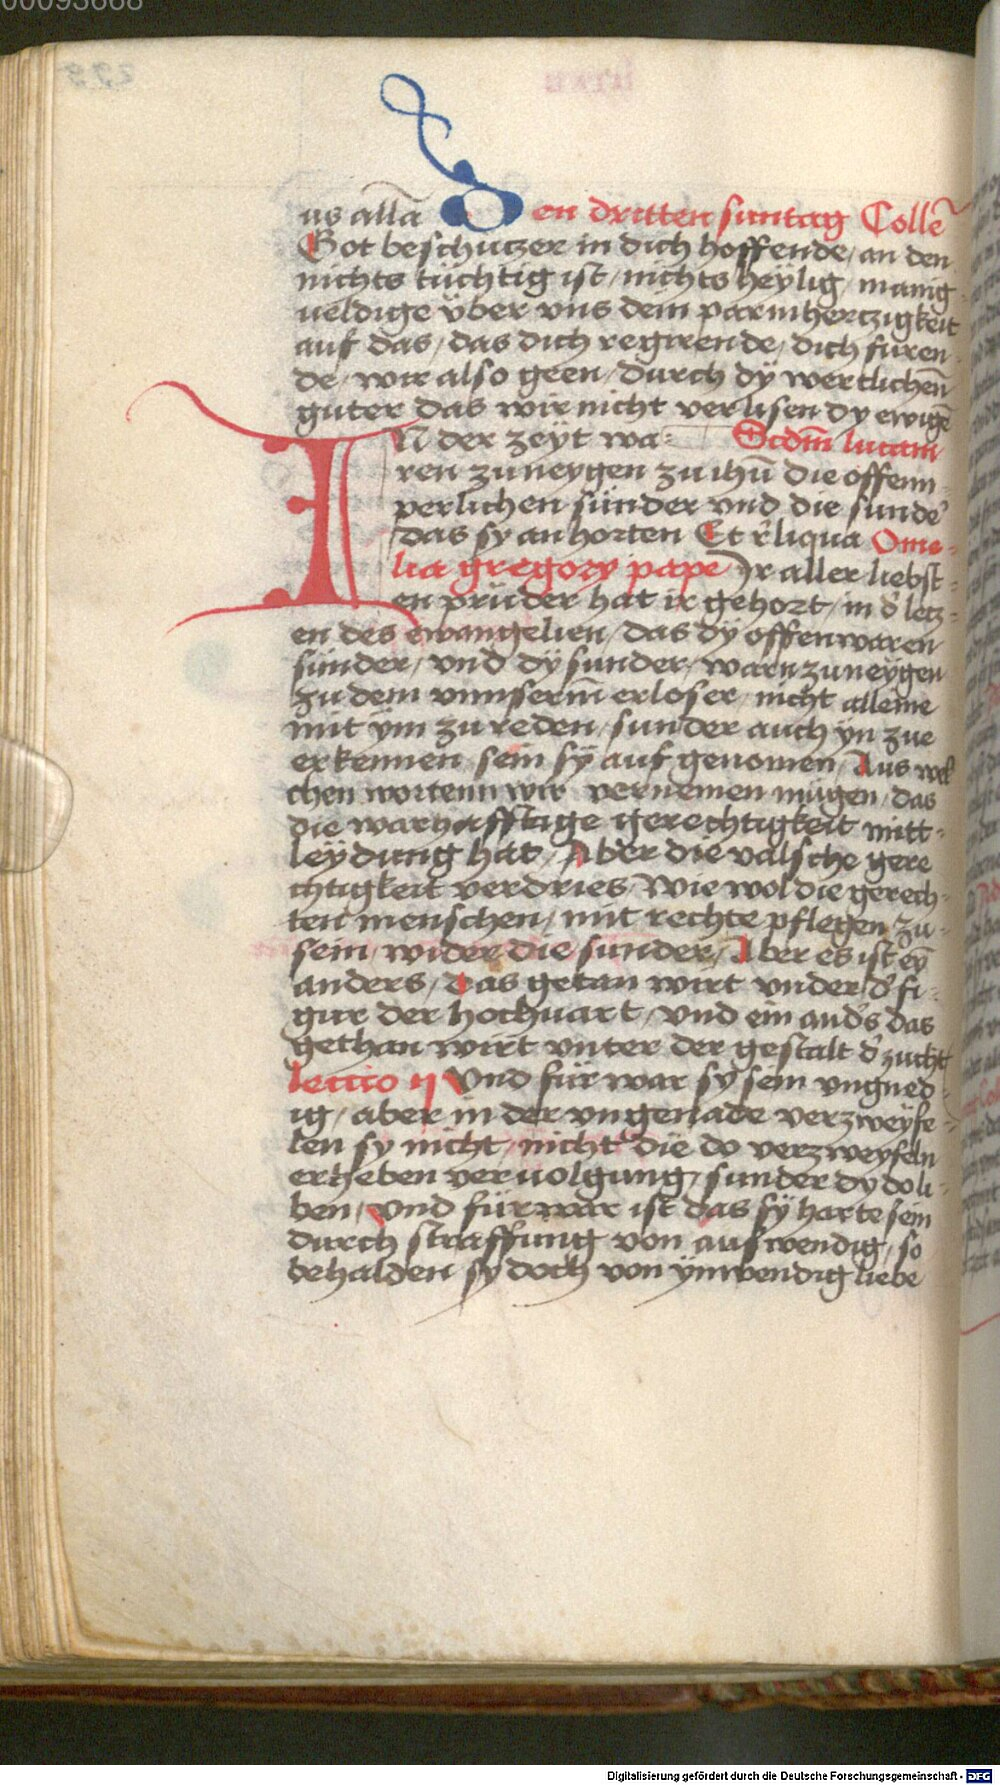 00093668
us allā Den dritten suntag Collē
Got beschuczer in dich hoffende / an den
nichts tüchtig ist / nichts heÿlig / manig
ueldige über vns dein parmherczigkeit
auf das / das dich regirende / dich furen
de / wir also geen / durch dÿ wertlichen̄
guter das wir nicht verlisen dy ewigē
IN der zeÿt wa: Scdm̄ lucam
ren zuneygen zu ihū die offenn
perlichen sünder vnd die sunde᷑
das sy an horten Et r̄liqua Ome-
lia gregory pape Ir aller liebst-
en prüder hat ir gehort / in d᷑ lecz-
en des ewangelien / das dÿ offenwaren
sünder / vnd dÿ sunder / warn zuneÿgen
zu dem vnnserm̄ erloser / nicht alleine
mit ÿm zu reden / sunder auch ÿn zue
erkennen / sein sÿ auf genomen / Aus wel
chen wortenn wir vernemen mügen / das
die warhafftige gerechtigkeit mitt-
leÿdung hat / Aber die valsche gere
chtigkeit verdries / Wie wol die gerech-
ten menschen / mit rechte pflegen zu-
sein / wider die sunder / Aber es ist eÿ̄
anders / das getan wirt vnder d᷑ fi-
gur der hochuart / vnd ein and᷑s das
gethan wirt vnter der gestalt d᷑ zucht
lectio ij Vnd für war sy sein vngned-
ig / aber in der vngenade verzweyfe-
len sy nicht / nicht die do verzweyfeln
erheben veruolgung / sunder dy do li-
ben / vnd für war ist das sÿ harte sein
durch straffung von aufwendig / so
behalden sy doch von ÿnwendig liebe
Digitalisierung gefördert durch die Deutsche Forschungsgemeinschaft - DFG